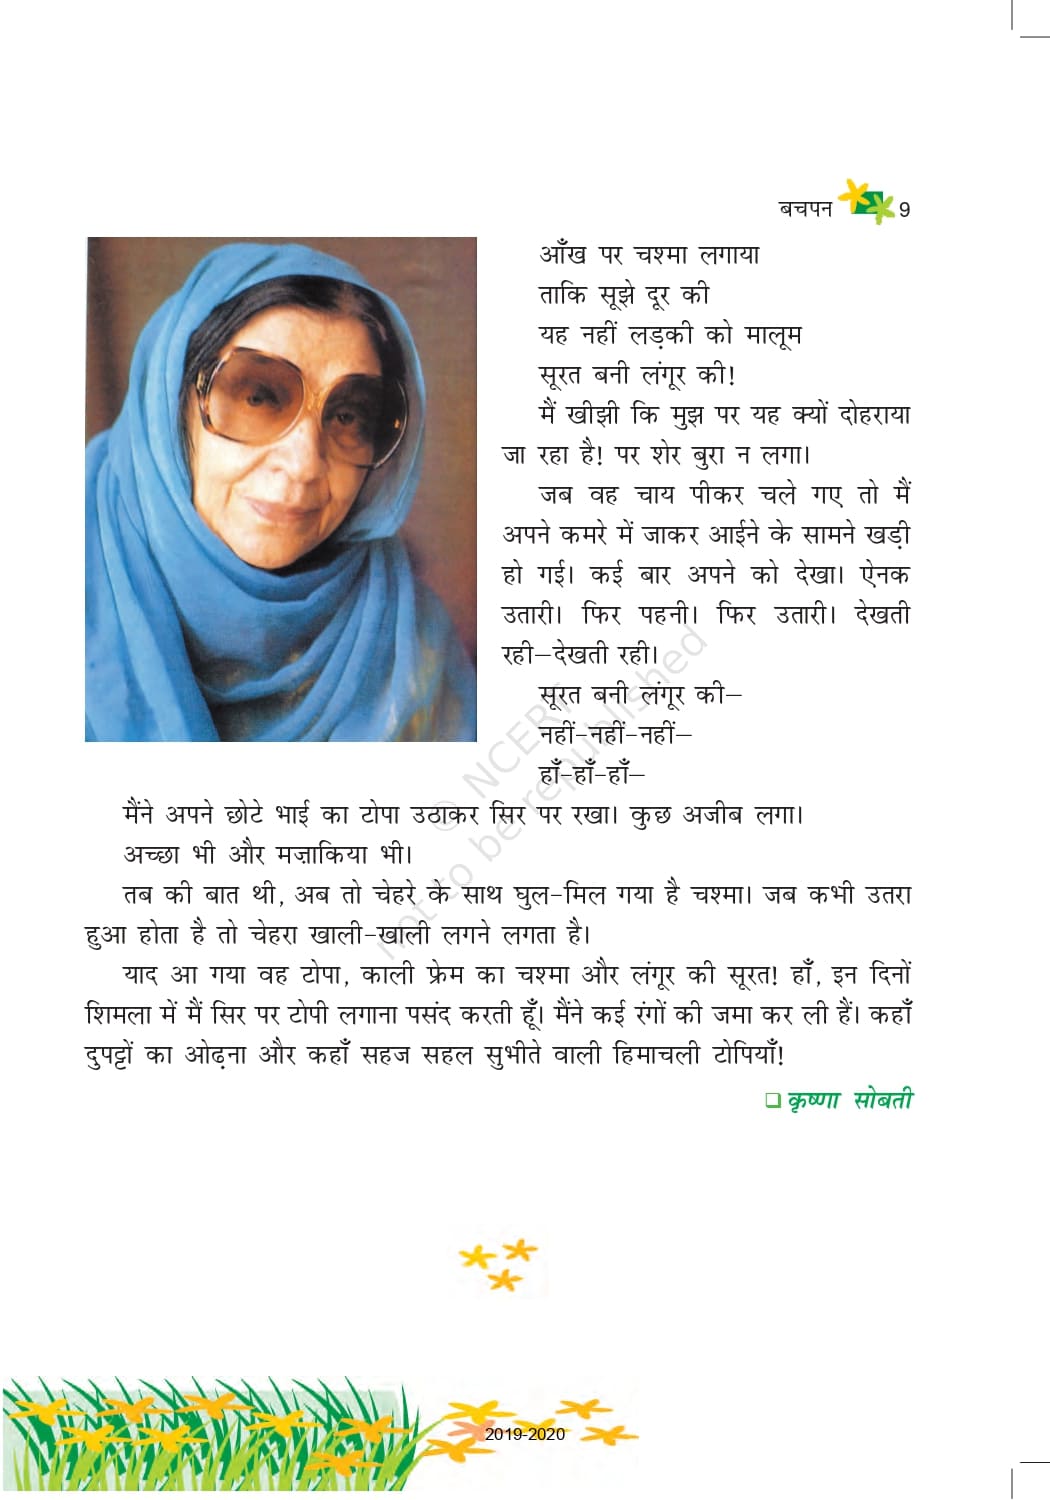 बचपन 9
आँख पर चश्मा लगाया
ताकि सूझे दूर की
यह नहीं लड़की को मालूम
सूरत बनी लंगूर की!
मैं खीझी कि मुझ पर यह क्यों दोहराया
जा रहा है! पर शेर बुरा न लगा।
जब वह चाय पीकर चले गए तो मैं
अपने कमरे में जाकर आईने के सामने खड़ी
हो गई। कई बार अपने को देखा। ऐनक
उतारी। फिर पहनी। फिर उतारी। देखती
रही–देखती रही।
सूरत बनी लंगूर की–
नहीं-नहीं-नहीं–
हाँ-हाँ-हाँ–
मैंने अपने छोटे भाई का टोपा उठाकर सिर पर रखा। कुछ अजीब लगा।
अच्छा भी और मज़ाकिया भी।
तब की बात थी, अब तो चेहरे के साथ घुल-मिल गया है चश्मा। जब कभी उतरा
हुआ होता है तो चेहरा खाली-खाली लगने लगता है।
याद आ गया वह टोपा, काली फ्रेम का चश्मा और लंगूर की सूरत! हाँ, इन दिनों
शिमला में मैं सिर पर टोपी लगाना पसंद करती हूँ। मैंने कई रंगों की जमा कर ली हैं। कहाँ
दुपट्टों का ओढ़ना और कहाँ सहज सहल सुभीते वाली हिमाचली टोपियाँ!
❑ कृष्णा सोबती
© NCERT
not to be republished
2019-2020